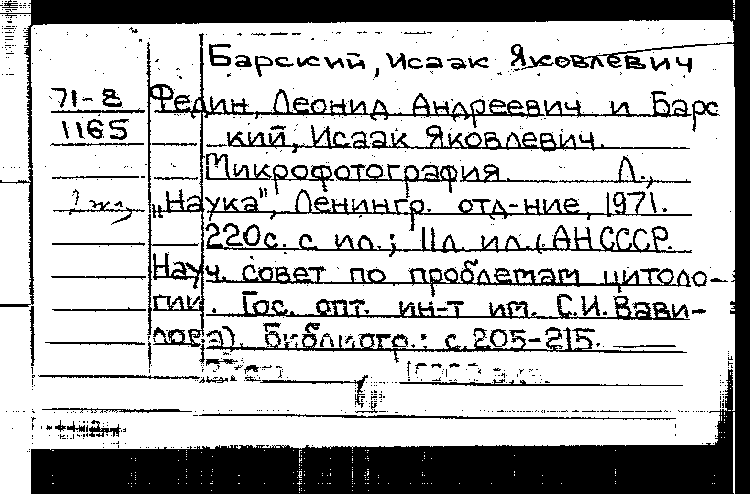 Барский, Исаак Яковлевич
71-8
1165
Федин, Леонид Андреевич и Барс
кий, Исаак Яковлевич.
Микрофотография. Л.,
1 экз
„Наука", Ленингр. отд-ние, 1971.
220с. с ил.; 11л. ил. (АН СССР.
Науч. совет по проблемам цитоло-
гии. Гос. опт. ин-т им. С.И. Вави-
лова). Библиогр.: с. 205-215.